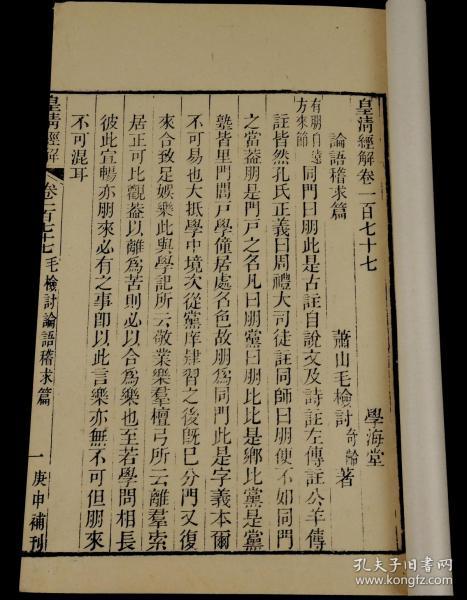 皇清經解卷一百七十七
學海堂
論語稽求篇
蕭山毛檢討奇齡著
有朋自遠方來節
同門曰朋此是古註自說文及詩註左傳註公羊傳
註皆然孔氏正義曰周禮大司徒註同師曰朋便不如同門
之當葢朋是門戶之名凡曰朋黨曰朋比比是鄉比黨是黨
塾皆里門閭戶學僮居處名色故朋爲同門此是字義本爾
不可易也大抵學中境次從黨庠肄習之後旣已分門又復
來合致足娛樂此與學記所云敬業樂羣檀弓所云離羣索
居正可比觀葢以離爲苦則必以合爲樂也至若學問相長
彼此宣暢亦朋來必有之事卽以此言樂亦無不可但朋來
不可混耳
皇清經解
卷一百七十七
毛檢討論語稽求篇
一
庚申補刊
孔夫子旧书网
www.kongfz.com